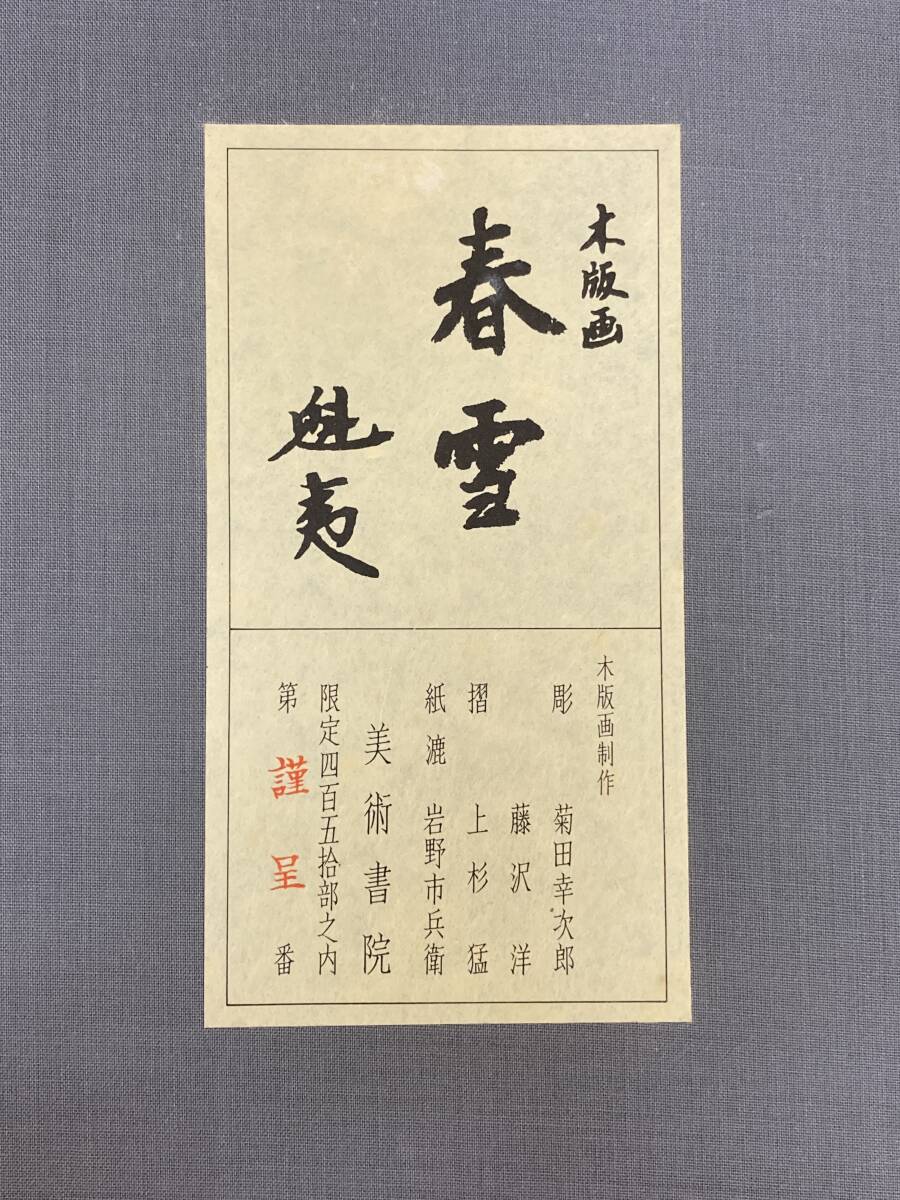 木版画
春雪
魁夷
木版画制作
彫 菊田幸次郎
藤沢洋
摺 上杉猛
紙漉 岩野市兵衛
美術書院
限定四百五拾部之内
第 謹呈 番